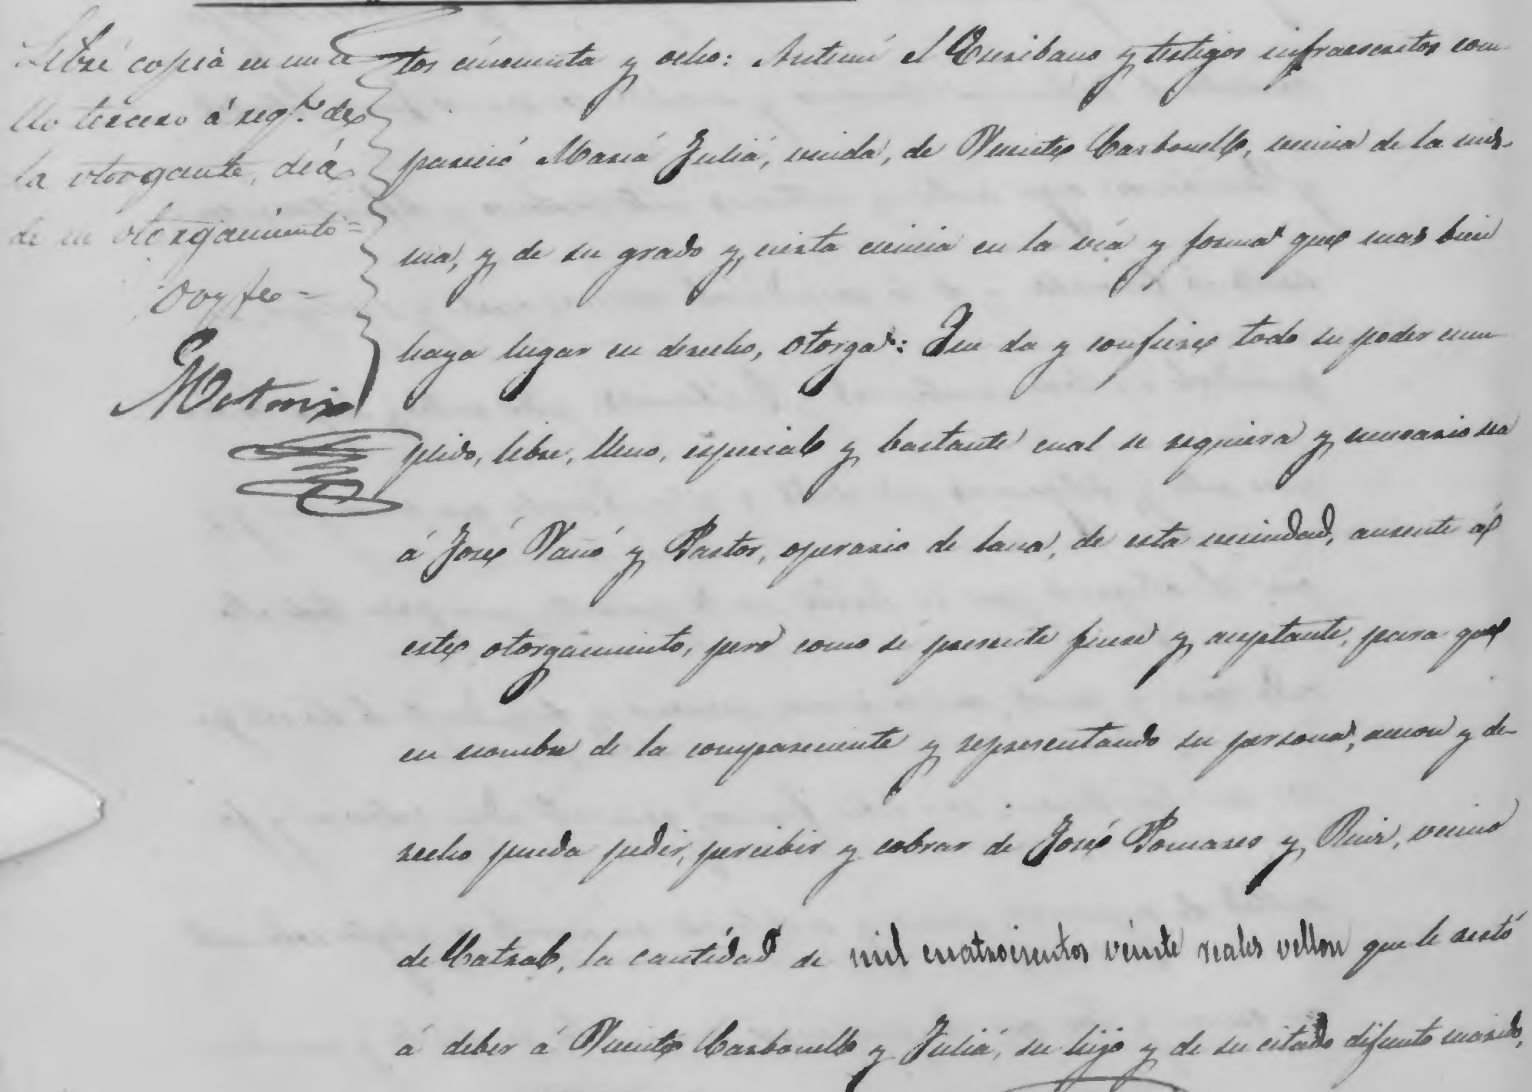 Libré copia en un se
llo tercero á reqto. de
la otorgante, día
de su otorgamiento=
Doy fe=
tos cincuenta y ocho: Antemí el Escribano y testigos infraescritos com-
pareció María Juliá, viuda, de Vicente Carbonell, vecina de la mis-
ma, y de su grado y cierta ciencia en la vía y forma que mas bien
haya lugar en derecho, otorga: Que da y confiere todo su poder cum-
plido, libre, lleno, especial y bastante cual se requiera y necesario sea
á José Vañó y Pastor, operario de lana, de esta vecindad, ausente á
este otorgamiento, pero como si presente fuese y aceptante, para que
en nombre de la compareciente y representando su persona, accion y de-
recho pueda pedir, percibir y cobrar de José Pomares y Ruiz, vecino
de Catral, la cantidad de mil cuatrocientos veinte reales vellon que le restó
á deber á Vicente Carbonell y Juliá, su hijo y de su citado difunto marido,